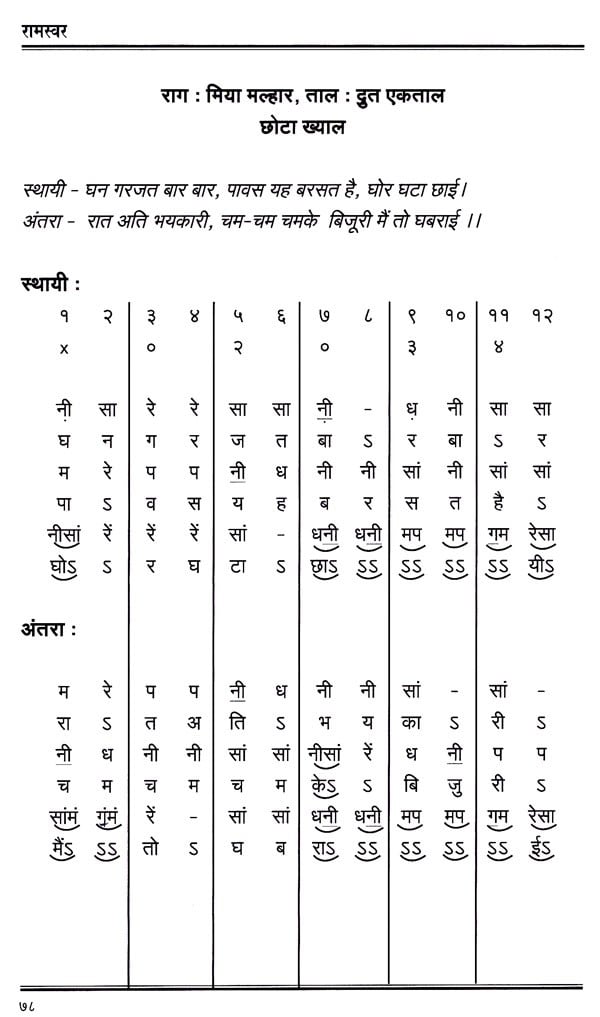 रामस्वर
राग : मिया मल्हार, ताल : द्रुत एकताल
छोटा ख्याल
स्थायी - घन गरजत बार बार, पावस यह बरसत है, घोर घटा छाई।
अंतरा - रात अति भयकारी, चम-चम चमके बिजूरी मैं तो घबराई ।।
स्थायी :
१ २ ३ ४ ५ ६ ७ ८ ९ १० ११ १२
x ० २ ० ३ ४
नी़ सा रे रे सा सा नी़॒ - ध़ नी सा सा
घ न ग र ज त बा ऽ र बा ऽ र
म रे प प नी॒ ध नी नी सां नी सां सां
पा ऽ व स य ह ब र स त है ऽ
नीसां रें रें रें सां - धनी॒ धनी॒ मप मप ग॒म रेसा
घोऽ ऽ र घ टा ऽ छाऽ ऽऽ ऽऽ ऽऽ ऽऽ यीऽ
अंतरा :
म रे प प नी॒ ध नी नी सां - सां -
रा ऽ त अ ति ऽ भ य का ऽ री ऽ
नी॒ ध नी नी सां सां नीसां रें ध नी॒ प प
च म च म च म केऽ ऽ बि जु री ऽ
सांमं गं॒मं रें - सां सां धनी॒ धनी॒ मप मप ग॒म रेसा
मैंऽ ऽऽ तो ऽ घ ब राऽ ऽऽ ऽऽ ऽऽ ऽऽ ईऽ
७८